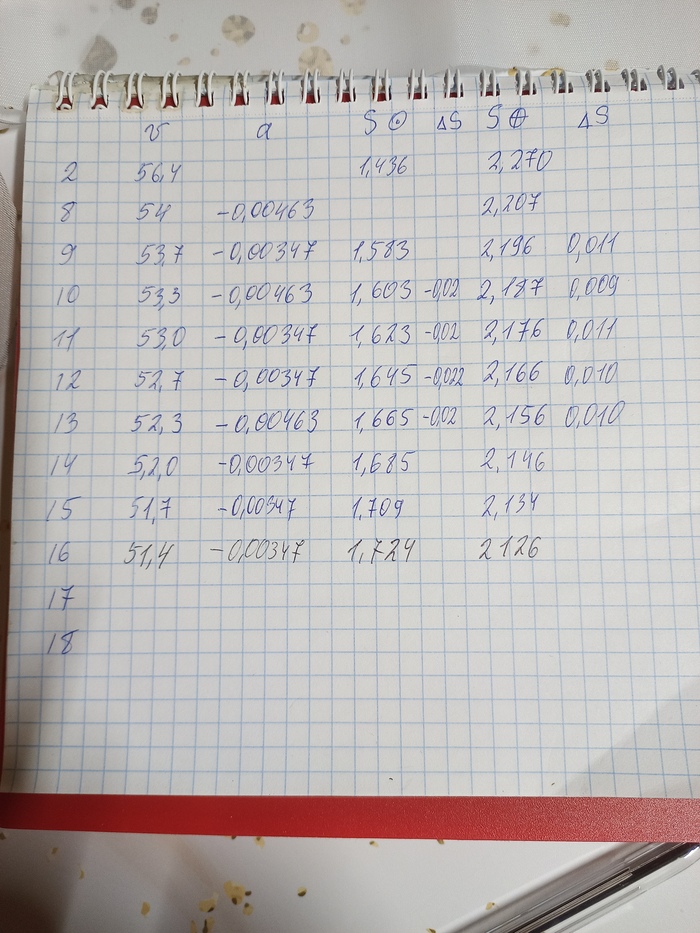 v a S ⊙ ΔS S ⊕ ΔS
2 56,4 1,436 2,270
8 54 -0,00463 2,207
9 53,7 -0,00347 1,583 2,196 0,011
10 53,3 -0,00463 1,603 -0,02 2,187 0,009
11 53,0 -0,00347 1,623 -0,02 2,176 0,011
12 52,7 -0,00347 1,645 -0,022 2,166 0,010
13 52,3 -0,00463 1,665 -0,02 2,156 0,010
14 5,2,0 -0,00347 1,685 2,146
15 51,7 -0,00347 1,709 2,134
16 51,4 -0,00347 1,724 2126
17
18